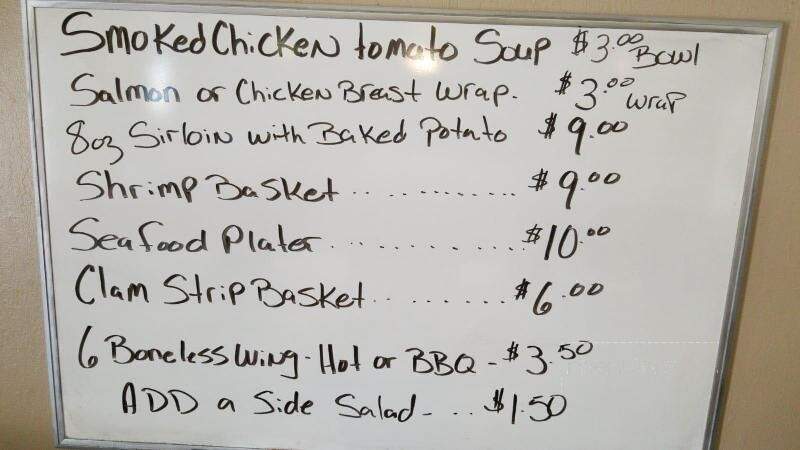 Smoked Chicken tomato Soup $3.00 Bowl
Salmon or Chicken Breast Wrap. $3.00 wrap
8oz Sirloin with Baked Potato $9.00
Shrimp Basket ............. $9.00
Seafood Plater ............. $10.00
Clam Strip Basket ........ $6.00
6 Boneless Wing - Hot or BBQ - $3.50
ADD a Side Salad - ... $1.50